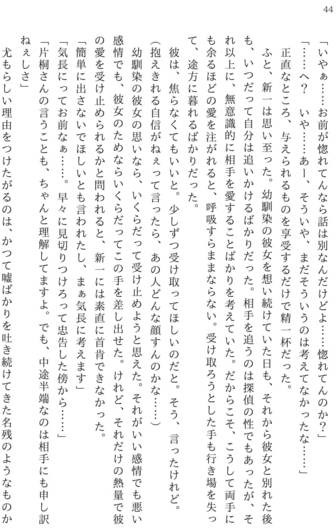 44
「いやぁ……お前が惚れてんなら話は別なんだけどよ……惚れてんのか？」
「……へ？　いや……あー、そういや、まだそういうのは考えてなかったな……」
正直なところ、与えられるものを享受するだけで精一杯だった。
ふと、新一は思い至った。幼馴染の彼女を想い続けていた日も、それから彼女と別れた後
も、いつだって自分は追いかけるばかりだった。相手を追うのは探偵の性でもあったが、そ
れ以上に、無意識的に相手を愛することばかりを考えていた。だからこそ、こうして両手に
も余るほどの愛を注がれると、呼吸すらままならない。受け取ろうとした手も行き場を失っ
て、途方に暮れるばかりだった。
彼は、焦らなくてもいいと。少しずつ受け取ってほしいのだと。そう、言ったけれど。
（抱えきれる自信がねぇって言ったら、あの人どんな顔すんのかな……）
幼馴染の彼女の思いなら、いくらだって受け止めようと思えた。それがいい感情でも悪い
感情でも、彼女のためならいくらだってこの手を差し出せた。けれど、それだけの熱量で彼
の愛を受け止められるかと問われると、新一には素直に首肯できなかった。
「簡単に出さないでほしいとも言われたし、まぁ気長に考えます」
「気長にってお前なぁ……。早々に見切りつけろって忠告した傍から……」
「片桐さんの言うことも、ちゃんと理解してますよ。でも、中途半端なのは相手にも申し訳
ねぇしさ」
尤もらしい理由をつけたがるのは、かつて嘘ばかりを吐き続けてきた名残のようなものか